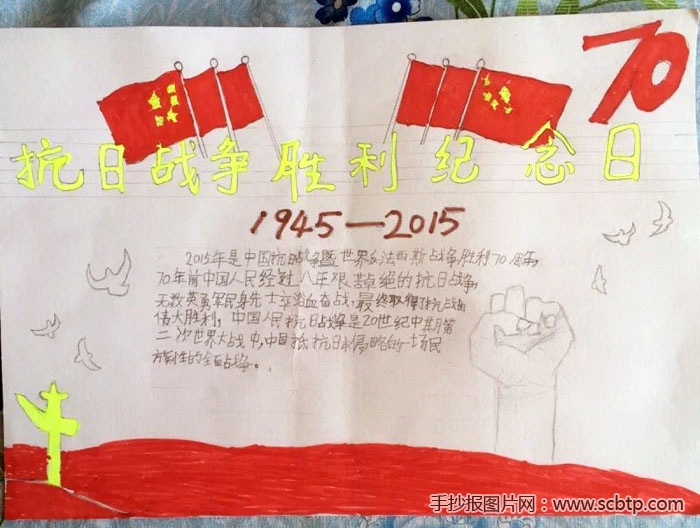 70
抗日战争胜利纪念日
1945—2015
2015年是中国抗日战争暨世界反法西斯战争胜利70周年,
70年前中国人民经过八年艰苦卓绝的抗日战争,
无数英勇军民身先士卒浴血奋战,最终取得了抗战的
伟大胜利,中国人民抗日战争是20世纪中期第
二次世界大战中,中国抵抗日本侵略的一场民
族性的全面战争。
手抄报图片网:www.scbtp.com